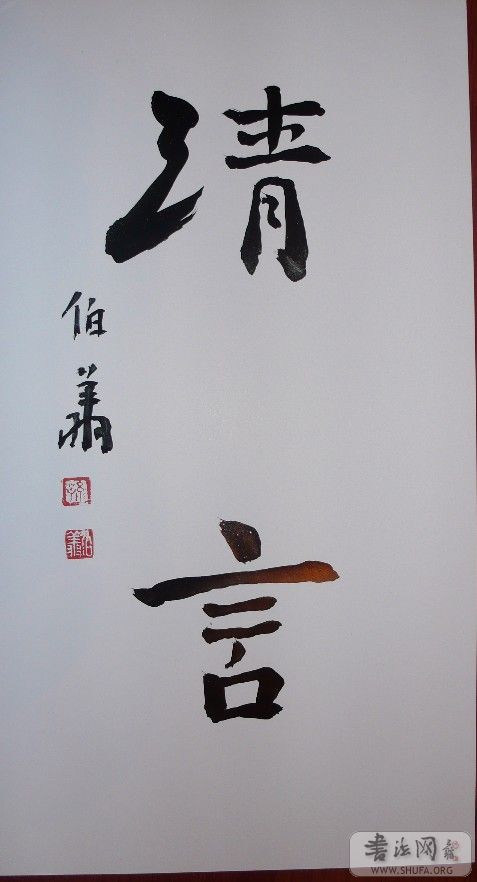 清言
伯
書法网
WWW.SHUFA.ORG